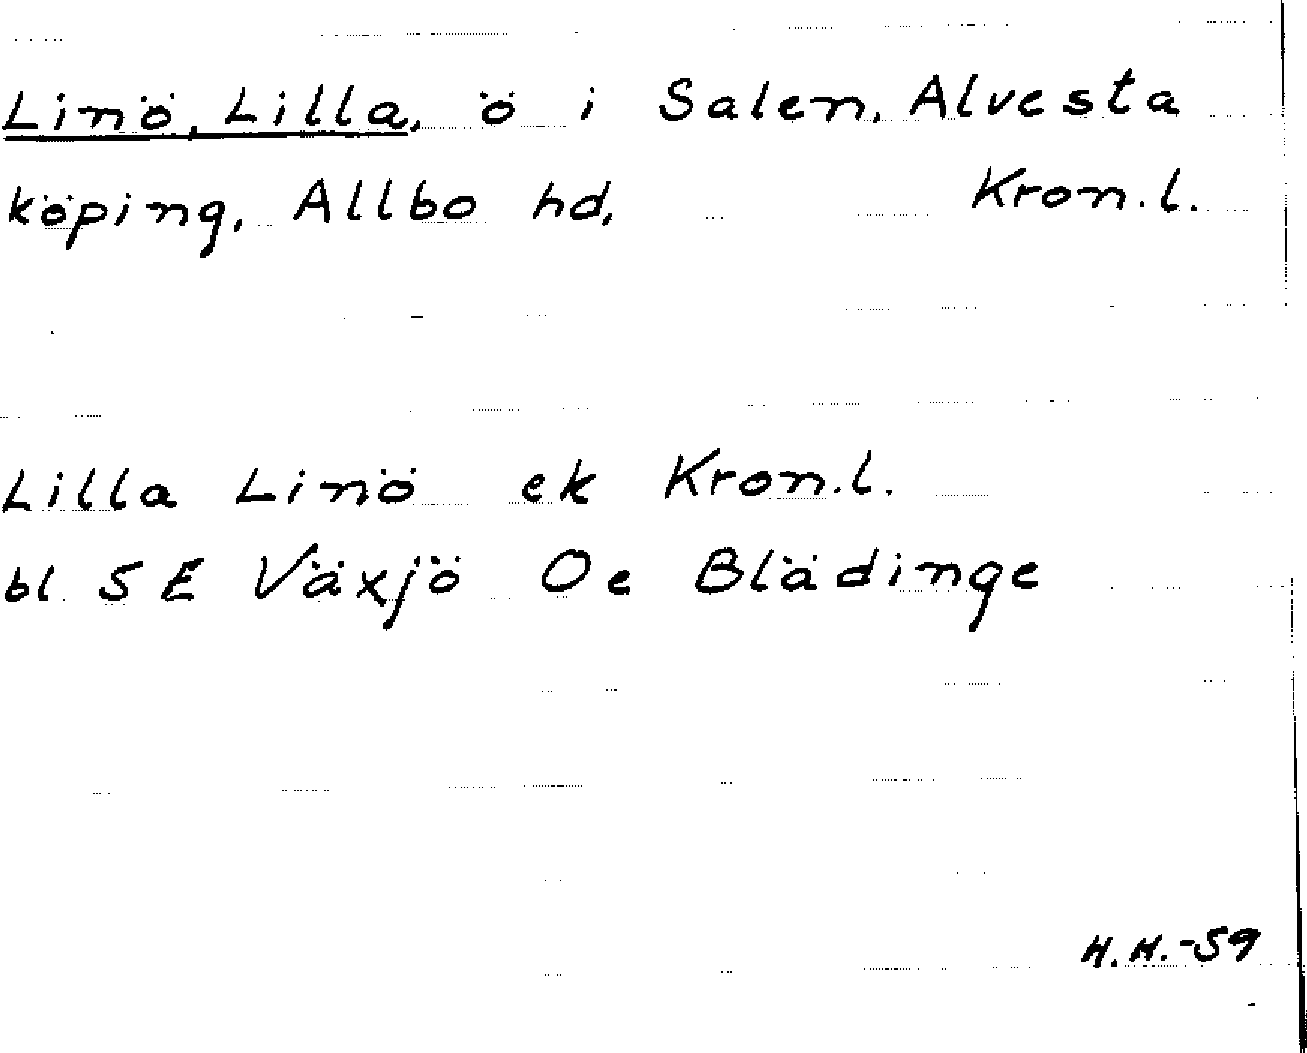 Linö, Lilla, ö i Salen, Alvesta
köping, Allbo hd, Kron.l.
Lilla Linö ek Kron.l.
bl 5E Växjö Oe Blädinge
H.H.-59